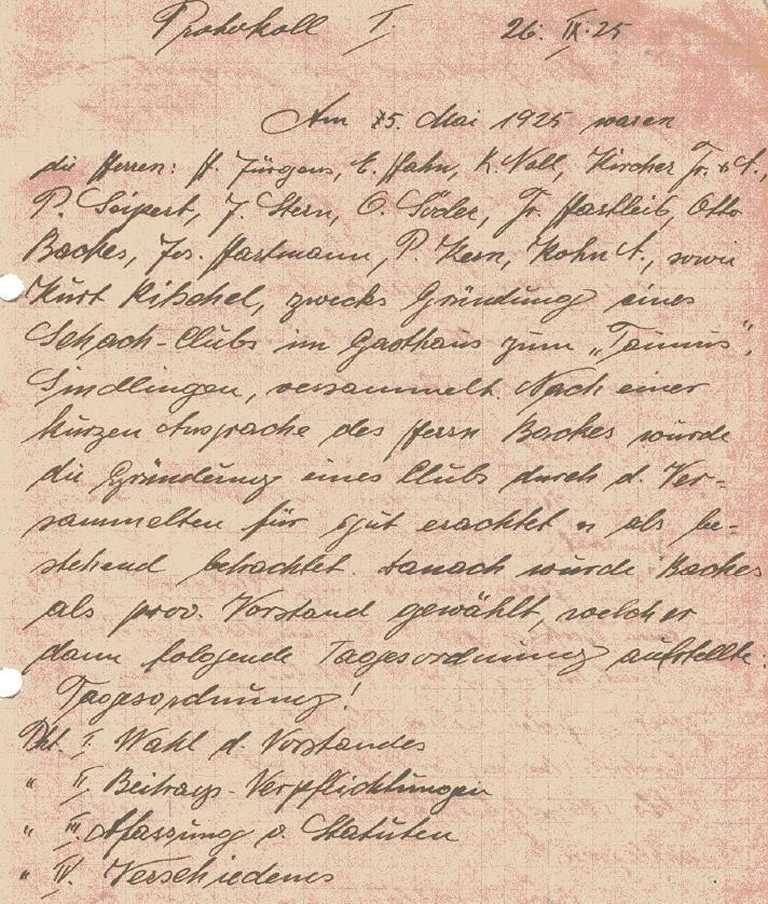 Protokoll I. 26. IX. 25
Am 15. Mai 1925 waren
die Herren: H. Jürgens, E. Hahn, K. Noll, Kircher Fr. & A.,
P. Seipert, J. Stern, O. Söder, Fr. Hartleib, Otto
Backes, Jos. Hartmann, P. Kern, Kohn A., sowie
Kurt Kitschel, zwecks Gründung eines
Schach-Clubs im Gasthaus zum „Taunus“,
Sindlingen, versammelt. Nach einer
kurzen Ansprache des Herrn Backes wurde
die Gründung eines Clubs durch d. Ver-
sammelten für gut erachtet u als be-
stehend betrachtet. danach wurde Backes
als prov. Vorstand gewählt, welcher
dann folgende Tagesordnung aufstellte:
Tagesordnung!
Pkt. I. Wahl d. Vorstandes
" II. Beitrags-Verpflichtungen
" III. Afassung v. Statuten
" IV. Verschiedenes